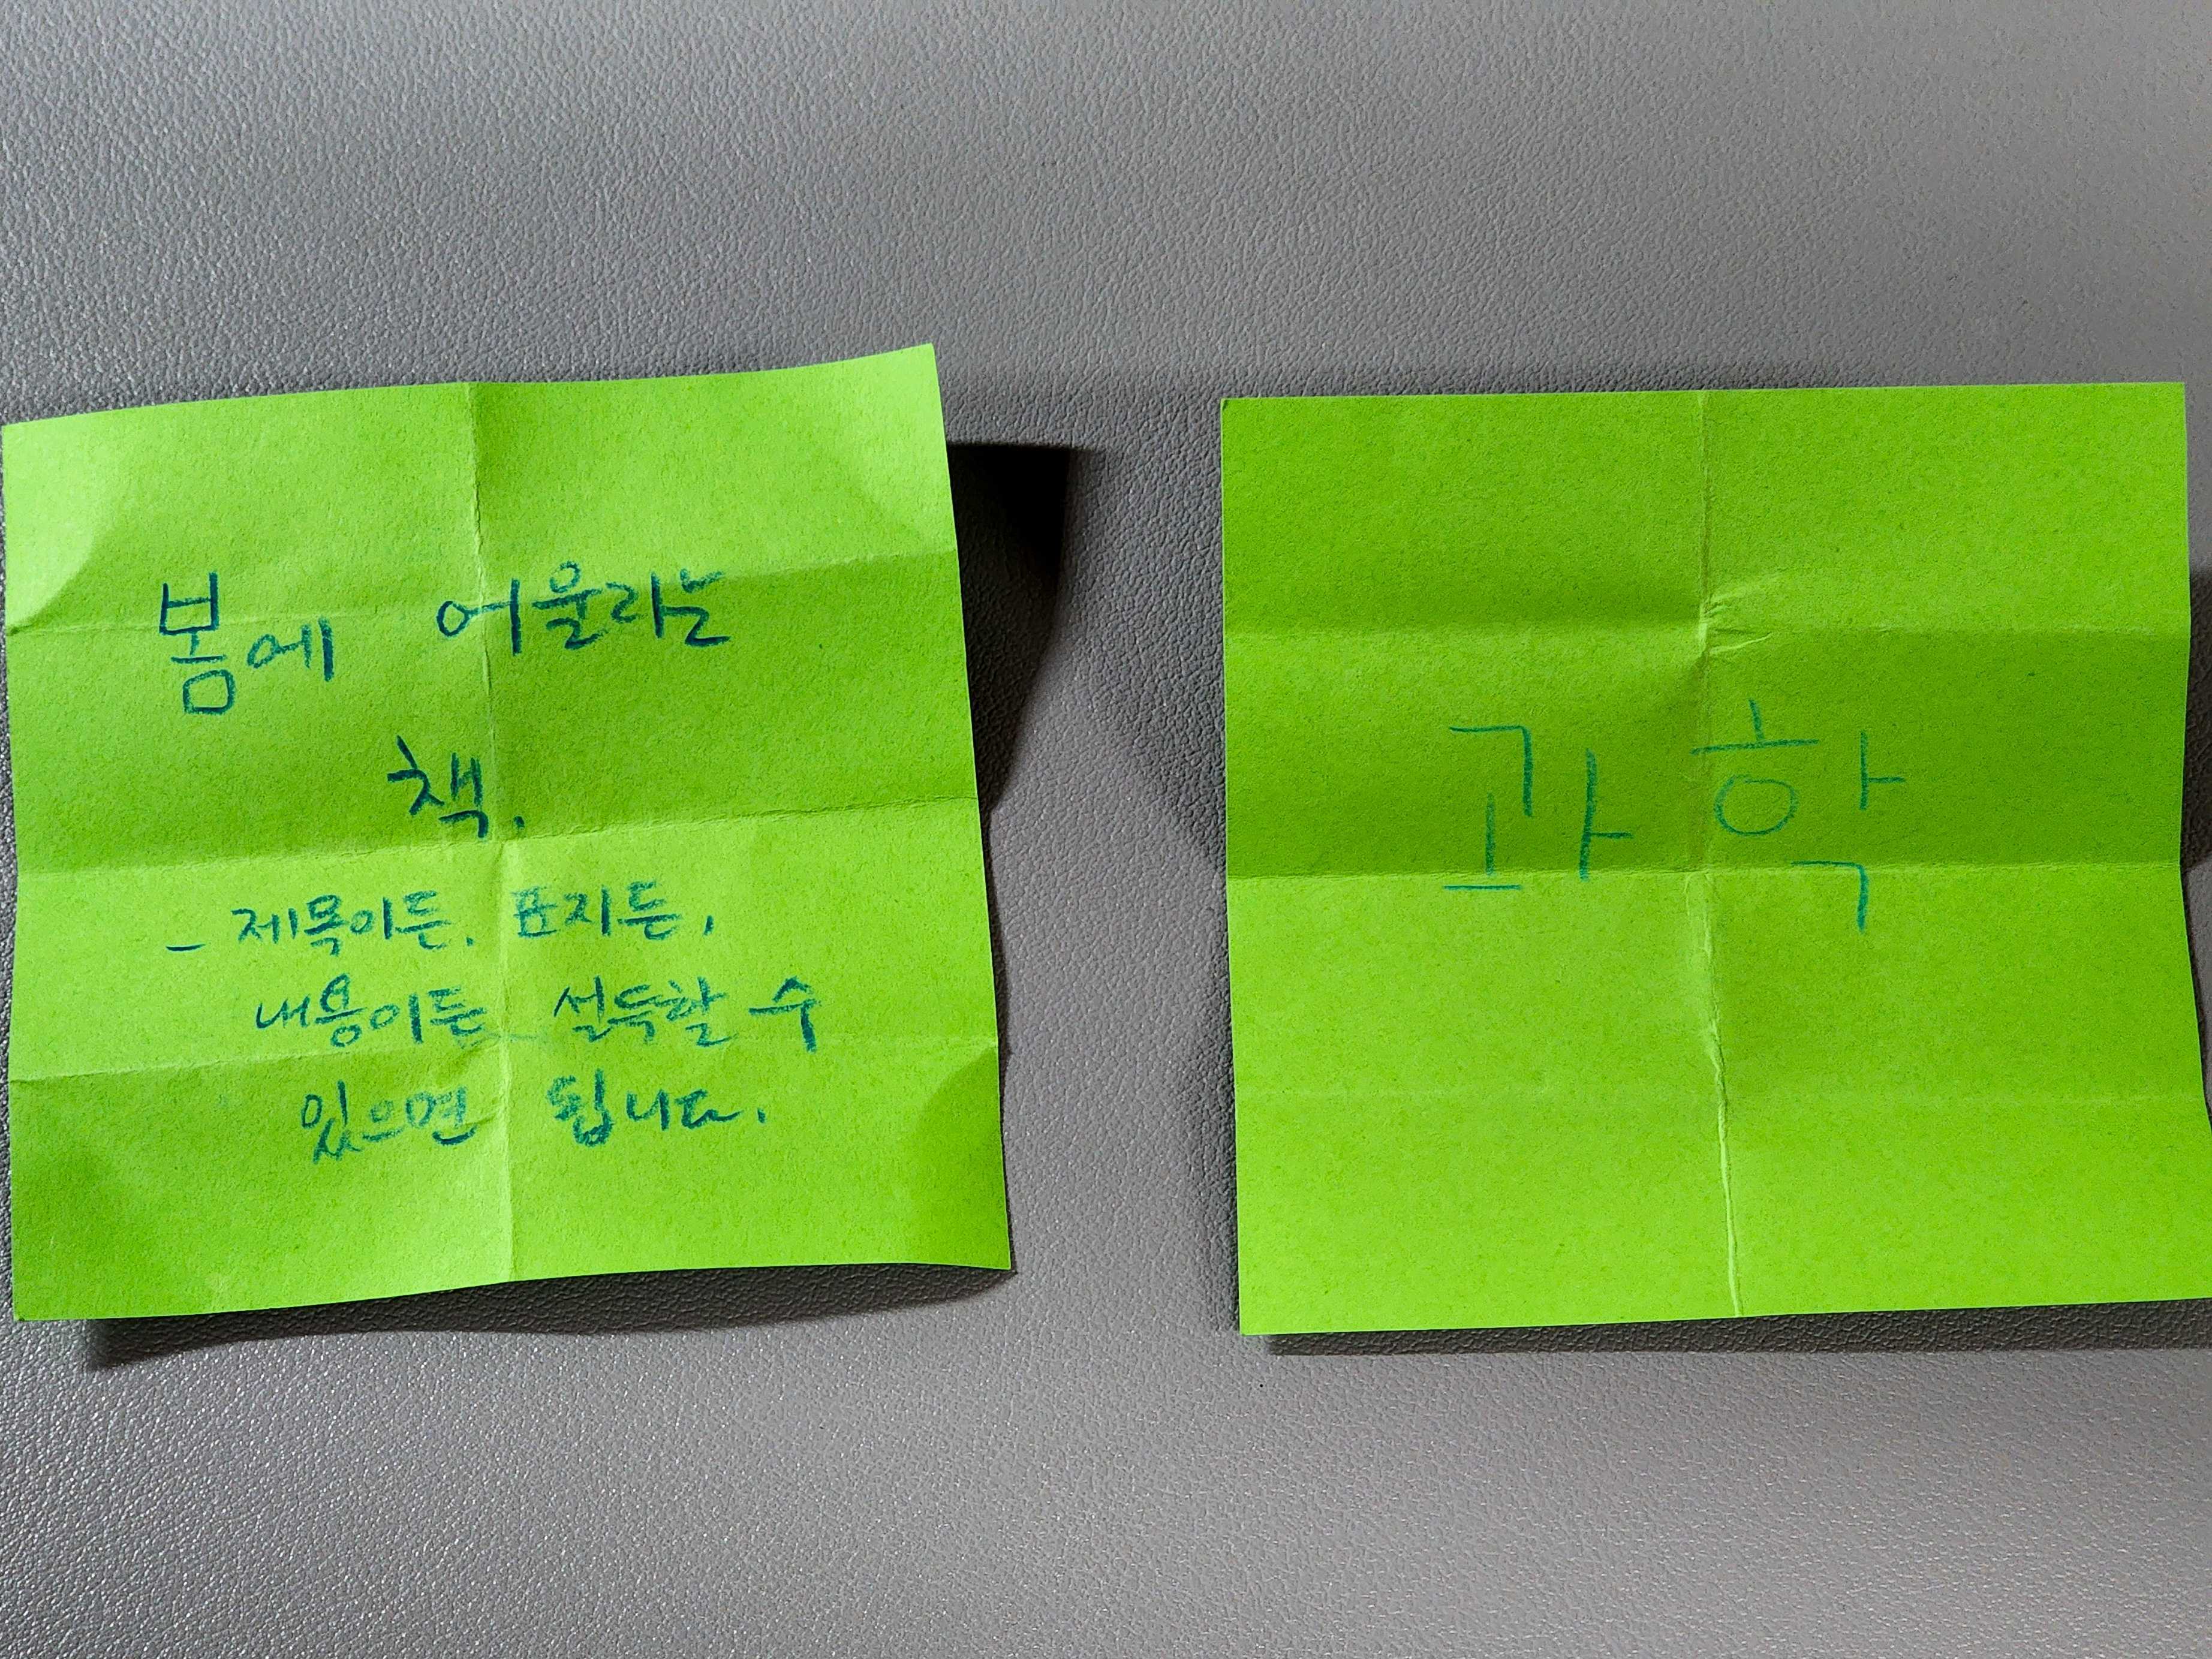 봄에 어울리는
책.
- 제목이든, 표지든,
내용이든 설득할 수
있으면 됩니다.
과학